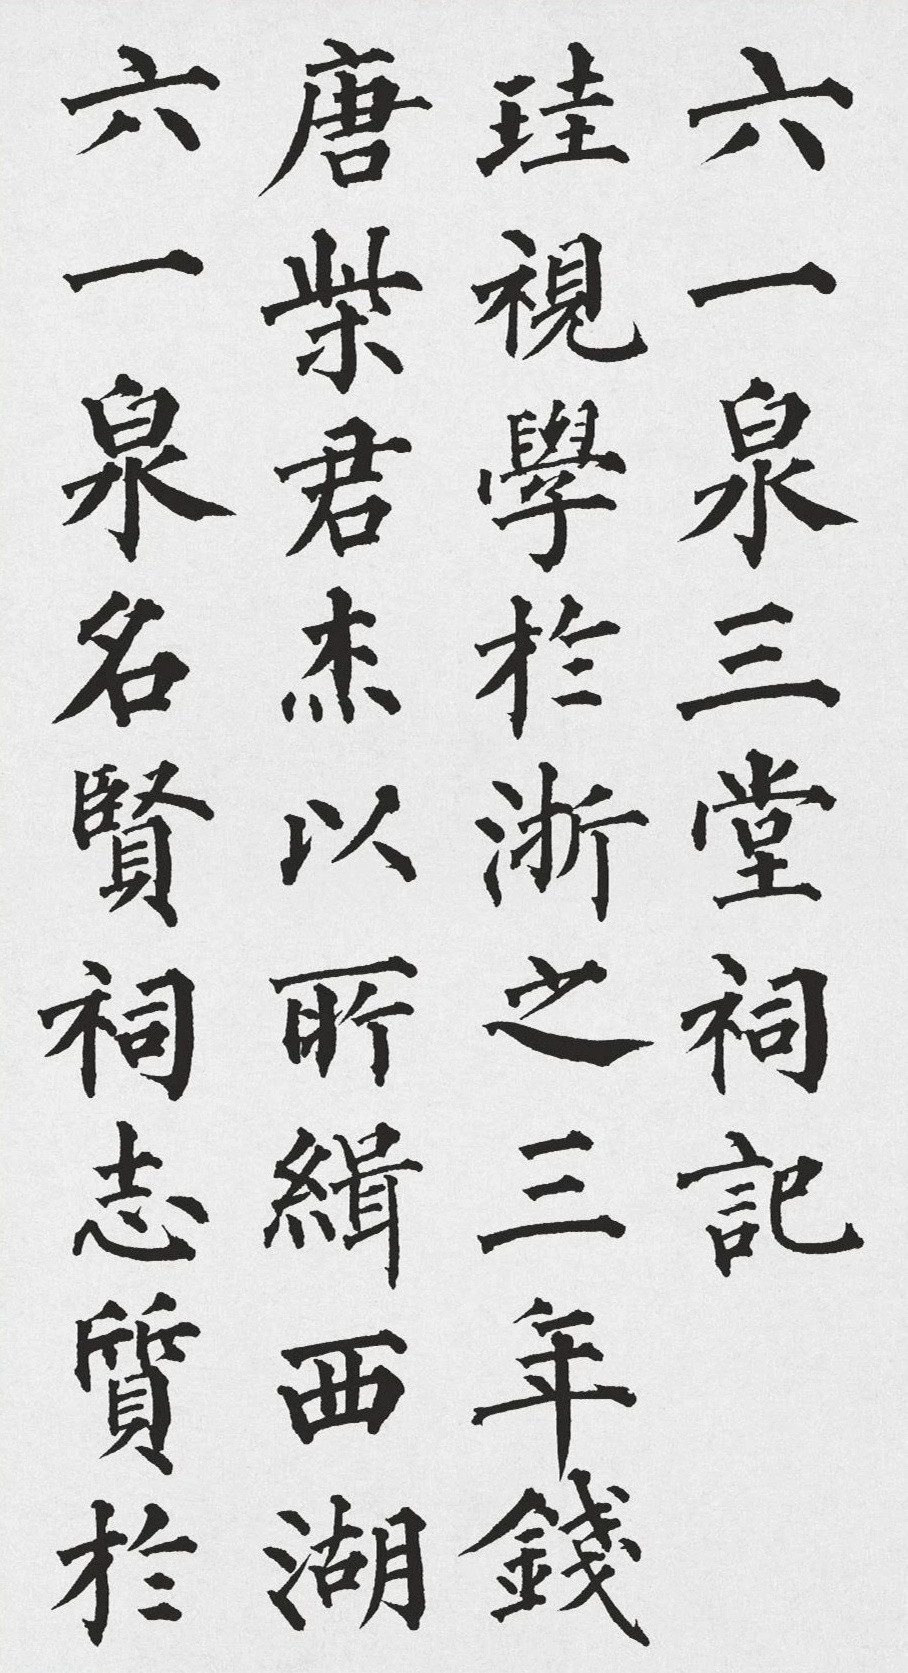 六一泉三堂祠記
珪視學於浙之三年錢
唐柴君杰以所緝西湖
六一泉名賢祠志質於